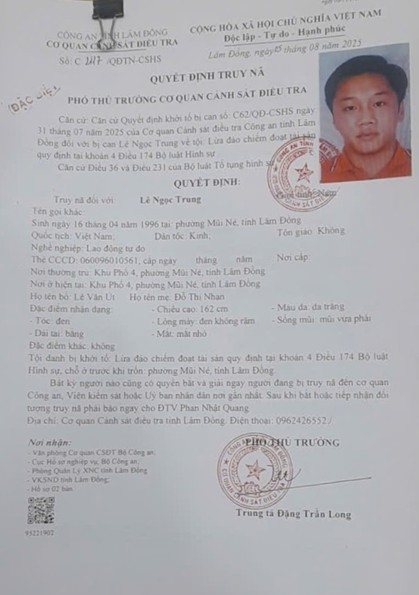 CÔNG AN TỈNH LÂM ĐỒNG
CƠ QUAN CẢNH SÁT ĐIỀU TRA
CỘNG HÒA XÃ HỘI CHỦ NGHĨA VIỆT NAM
Độc lập - Tự do - Hạnh phúc
/QĐTN-CSHS
Lâm Đồng, ngày 15 tháng 08 năm 2025
ĐẶC BIỆT
QUYẾT ĐỊNH TRUY NÃ
PHÓ THỦ TRƯỞNG CƠ QUAN CẢNH SÁT ĐIỀU TRA
Căn cứ: Căn cứ Quyết định khởi tố bị can số: C62/QĐ-CSHS ngày
31 tháng 07 năm 2025 của Cơ quan Cảnh sát điều tra Công an tỉnh Lâm
Đồng đối với bị can Lê Ngọc Trung về tội: Lừa đảo chiếm đoạt tài sản
quy định tại khoản 4 Điều 174 Bộ luật Hình sự
Căn cứ Điều 36 và Điều 231 của Bộ luật Tố tụng hình sự.
QUYẾT ĐỊNH:
Truy nã đối với Lê Ngọc Trung Giới tính: Nam
Tên gọi khác:
Sinh ngày 16 tháng 04 năm 1996 tại: phường Mũi Né, tỉnh Lâm Đồng
Quốc tịch: Việt Nam; Dân tộc: Kinh; Tôn giáo: Không
Nghề nghiệp: Lao động tự do
Thẻ CCCD: 060096010561; cấp ngày tháng năm Nơi cấp:
Nơi thường trú: Khu Phố 4, phường Mũi Né, tỉnh Lâm Đồng
Nơi ở hiện tại: Khu Phố 4, phường Mũi Né, tỉnh Lâm Đồng
Họ tên bố: Lê Văn Út Họ tên mẹ: Đỗ Thị Nhạn
Đặc điểm nhận dạng: - Chiều cao: 162 cm - Màu da: da trắng
- Tóc: đen - Lông mày: đen không rậm - Sống mũi: mũi vừa phải
- Dái tai: bằng - Mắt: mắt nhỏ
Đặc điểm khác: không
Tội danh bị khởi tố: Lừa đảo chiếm đoạt tài sản quy định tại khoản 4 Điều 174 Bộ luật
Hình sự, chỗ ở trước khi trốn: phường Mũi Né, tỉnh Lâm Đồng.
Bất kỳ người nào cũng có quyền bắt và giải ngay người đang bị truy nã đến cơ quan
Công an, Viện kiểm sát hoặc Uỷ ban nhân dân nơi gần nhất. Sau khi bắt hoặc tiếp nhận đối
tượng truy nã phải báo ngay cho ĐTV Phan Nhật Quang
Địa chỉ: Cơ quan Cảnh sát điều tra tỉnh Lâm Đồng. Điện thoại: 0962426552./.
Nơi nhận:
- Văn phòng Cơ quan CSĐT Bộ Công an;
- Cục Hồ sơ nghiệp vụ, Bộ Công an;
- Phòng Quản Lý XNC tỉnh Lâm Đồng;
- VKSND tỉnh Lâm Đồng;
- Hồ sơ 02 bản.
PHÓ THỦ TRƯỞNG
93221902
Trung tá Đặng Trần Long